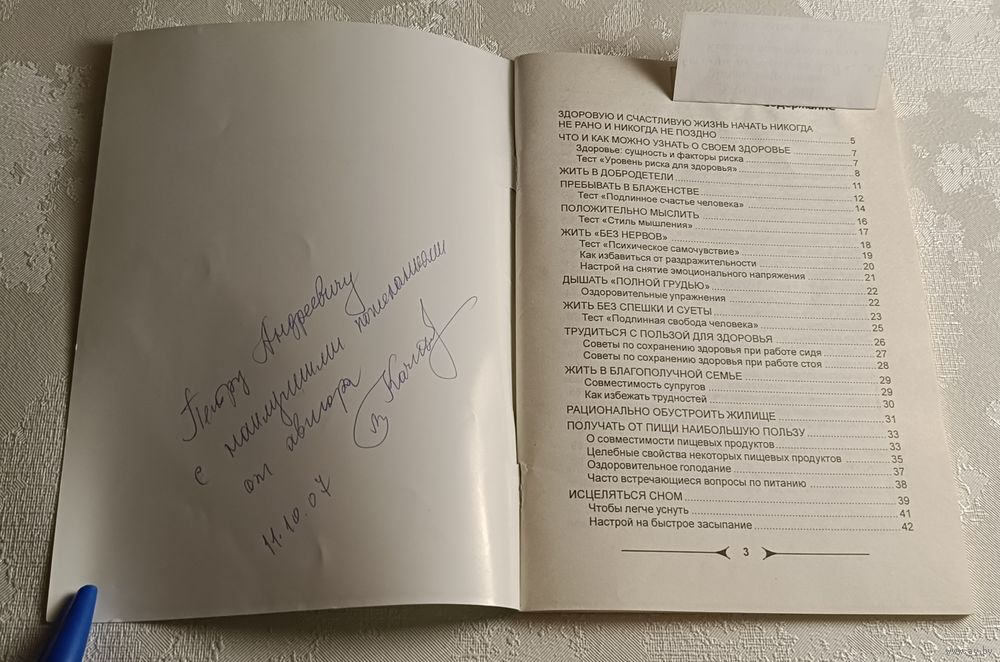 Петру Андреевичу
с наилучшими пожеланиями
от автора
11.10.07
содержание
ЗДОРОВУЮ И СЧАСТЛИВУЮ ЖИЗНЬ НАЧАТЬ НИКОГДА
НЕ РАНО И НИКОГДА НЕ ПОЗДНО 5
ЧТО И КАК МОЖНО УЗНАТЬ О СВОЕМ ЗДОРОВЬЕ 7
Здоровье: сущность и факторы риска 7
Тест «Уровень риска для здоровья» 8
ЖИТЬ В ДОБРОДЕТЕЛИ 11
ПРЕБЫВАТЬ В БЛАЖЕНСТВЕ 12
Тест «Подлинное счастье человека» 14
ПОЛОЖИТЕЛЬНО МЫСЛИТЬ 16
Тест «Стиль мышления» 17
ЖИТЬ «БЕЗ НЕРВОВ» 18
Тест «Психическое самочувствие» 19
Как избавиться от раздражительности 20
Настрой на снятие эмоционального напряжения 21
ДЫШАТЬ «ПОЛНОЙ ГРУДЬЮ» 22
Оздоровительные упражнения 22
ЖИТЬ БЕЗ СПЕШКИ И СУЕТЫ 23
Тест «Подлинная свобода человека» 25
ТРУДИТЬСЯ С ПОЛЬЗОЙ ДЛЯ ЗДОРОВЬЯ 26
Советы по сохранению здоровья при работе сидя 27
Советы по сохранению здоровья при работе стоя 28
ЖИТЬ В БЛАГОПОЛУЧНОЙ СЕМЬЕ 29
Совместимость супругов 29
Как избежать трудностей 30
РАЦИОНАЛЬНО ОБУСТРОИТЬ ЖИЛИЩЕ 31
ПОЛУЧАТЬ ОТ ПИЩИ НАИБОЛЬШУЮ ПОЛЬЗУ 33
О совместимости пищевых продуктов 33
Целебные свойства некоторых пищевых продуктов 35
Оздоровительное голодание 37
Часто встречающиеся вопросы по питанию 38
ИСЦЕЛЯТЬСЯ СНОМ 39
Чтобы легче уснуть 41
Настрой на быстрое засыпание 42
3